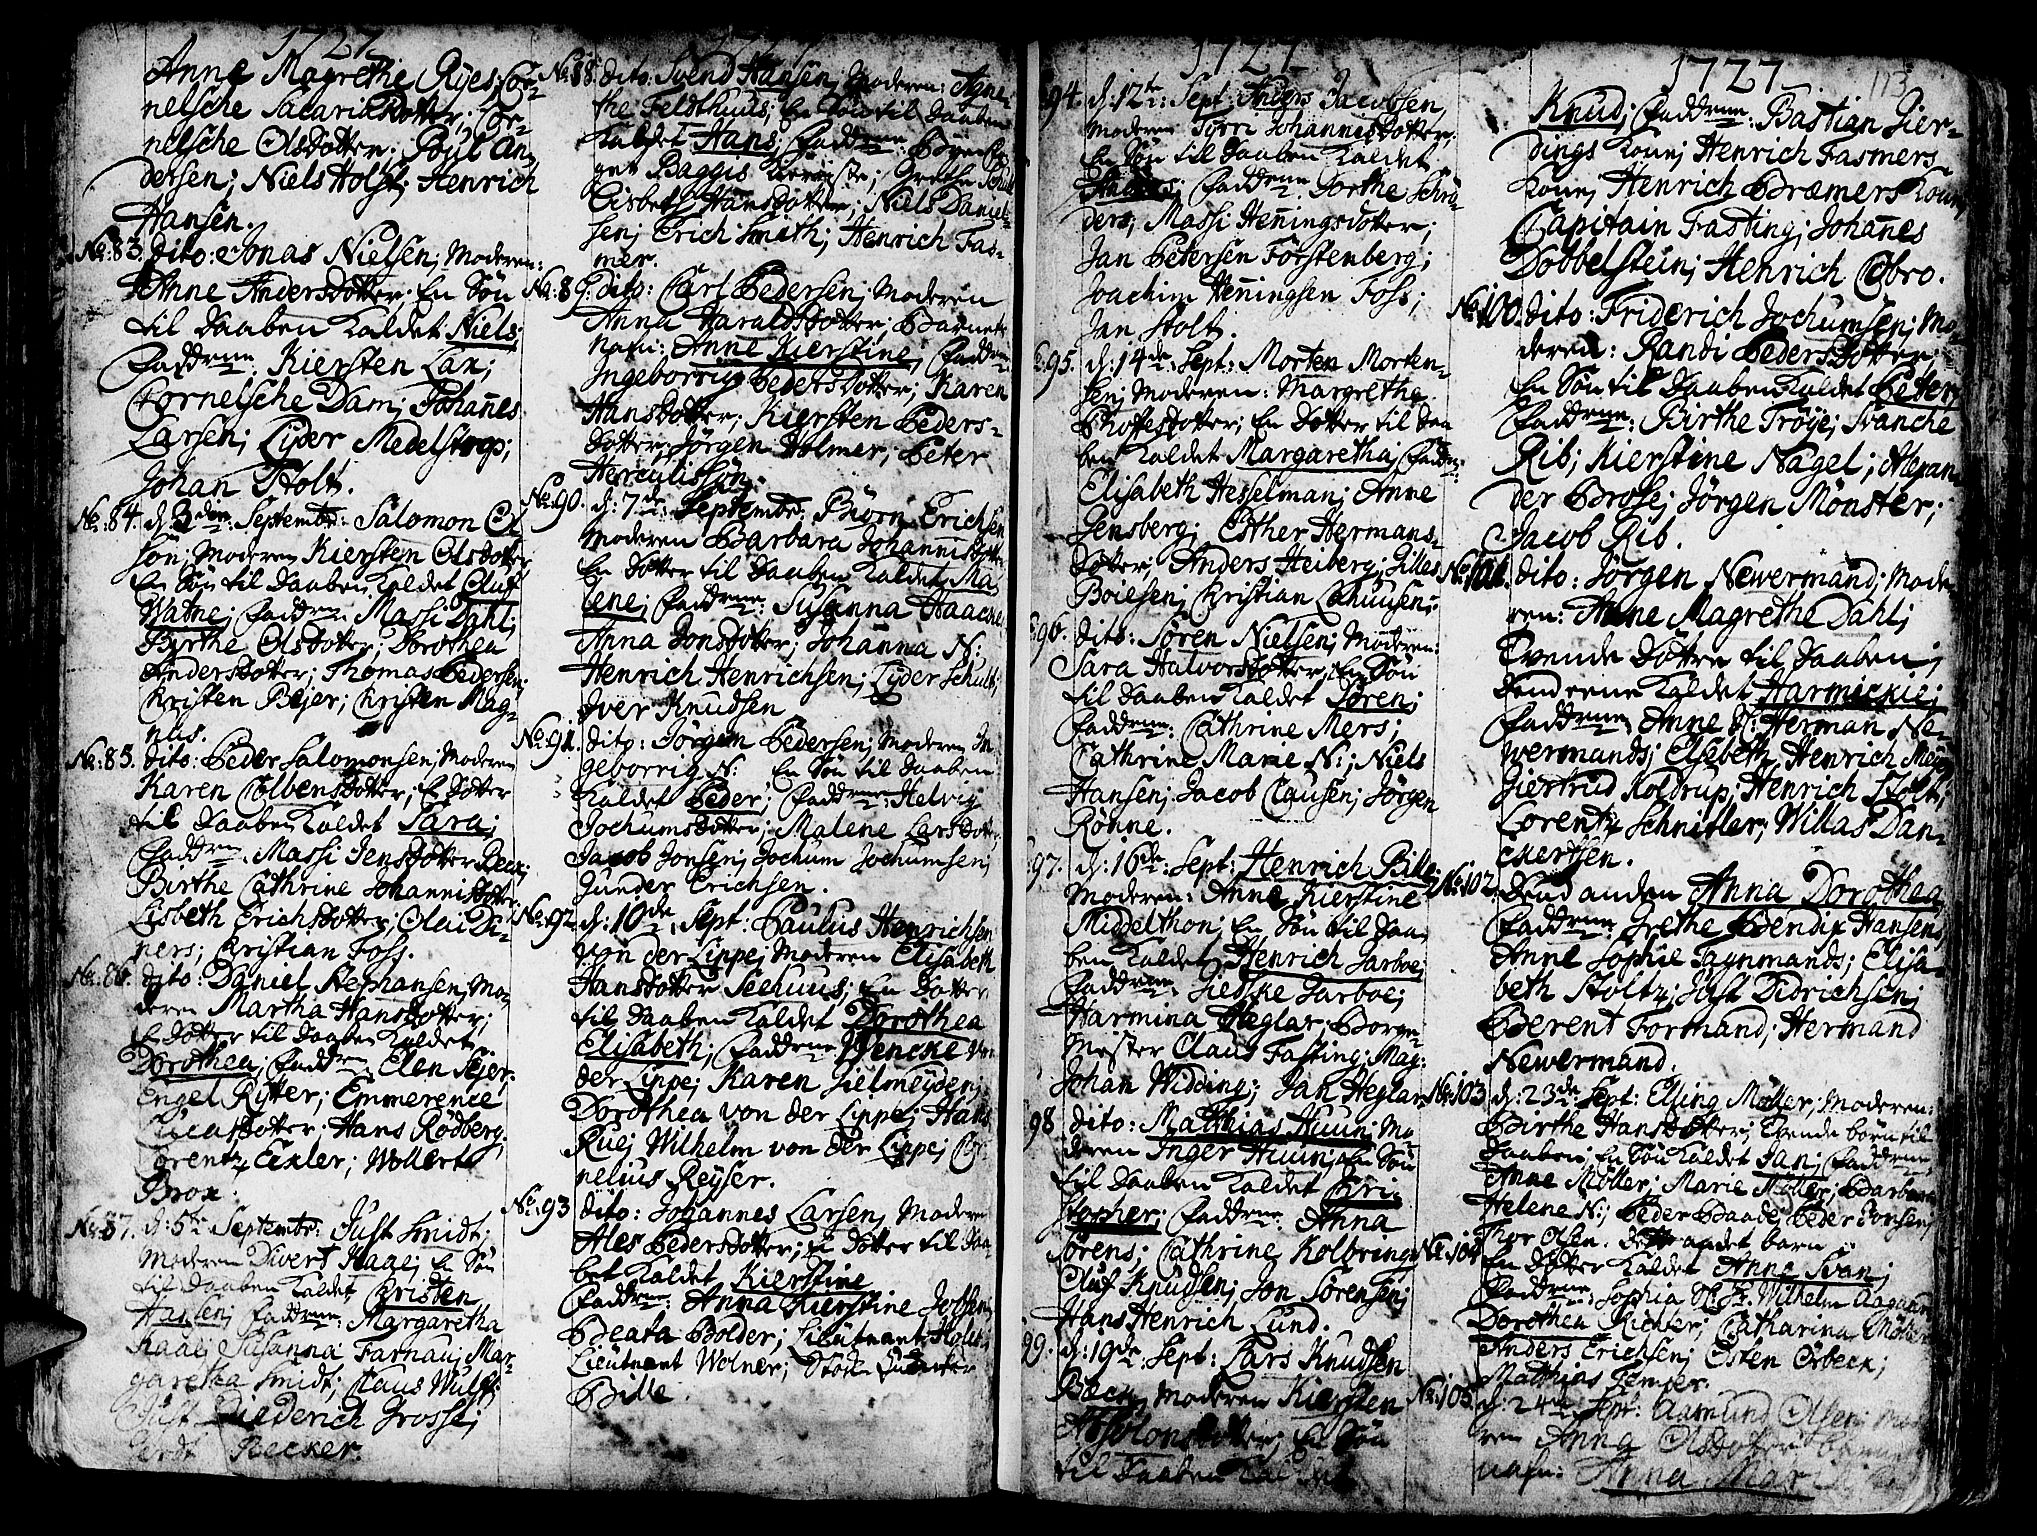 1727
Anne Magrethe Ryes; Cor-
nelsche Sacariæ dotter; Cor-
nelsche Olsdotter; Poul An-
dersen; Niels Holst; Henrich
Hansen.
No: 83. dito: Jonas Nielsen; Moderen:
Anne Andersdotter. En Søn
til Daaben kaldet Niels.
Faddrene: Kiersten Lax;
Cornelsche Dam; Johañes
Larsen; Lyder Medelstrop;
Johan Stolt.
No: 84. d. 3den Septembr: Salomon Ol
søn; Moderen Kiersten Olsdotter
En Søn til Daaben kaldet Oluf
Watne; Faddrene Massi Dahl;
Birthe Olsdotter; Dorothea
Andersdotter; Thomas Pedersen;
Kristen Bejer; Kristen Mag-
nus.
No: 85. dito: Peder Salomonsen; Moderen
Karen Colbensdotter; E Dotter
til Daaben kaldet Sara;
Faddrene Massi Jensdotter
Birthe Cathrine Johannisdotter
Lisbeth Erichsdotter; Olai Di-
ners; Kristian Foss.
No: 86. dito: Daniel Stephansen; Mo-
deren Martha Hansdotter;
E Dotter til Daaben kaldet
Dorothea; Faddrene Elen Sejer
Engel Rytter; Emmerence
Lucasdotter; Hans Rødberg;
Lorentz Exler; Wollert
Brox.
No: 87. d: 5te Septembr: Just Smidt;
Moderen Divert Haae; En Søn
til Daaben kaldet Cristen
Hansen; Faddrene: Margaretha
Kaae; Susanna Farnau; Mar-
garetha Smidt; Claus Wulf;
Just Diederich Grosse;
Recker.
No: 88. dito: Svend Hansen, Moderen: Agne-
the Feldthuus; En Søn til Daaben
kaldet Hans; Faddrene Børn
Baggis ; Grethe
Lisbeth Hansdotter; Niels Daniel-
sen; Erich Smith; Henrich Fas-
mer.
No: 89. dito: Carl Pedersen; Moderen
Anna Haraldsdotter. Barnets
nafn: Anne Kierstine, Faddrene
Ingeborrig Pedersdotter; Karen
Hansdotter; Kiersten Peders-
dotter; Jørgen Holmer; Peter
Herculissøn.
No: 90. d: 7de Septembr. Biørn Erichsen
Moderen Barbara Johannisdotter
En Dotter til Daaben kaldet Ma-
lene; Faddrene: Susanna Haacke
Anna Jonsdotter; Johanna N:
Henrich Henrichsen; Lyder Schult;
Iver Knudsen
No: 91. dito: Jørgen Pedersen; Moderen In
geborrig N: En Søn til Daaben
kaldet Peder; Faddrene: Helvig
Jochumsdotter; Malene Larsdotter
Jacob Jonsen; Jochum Jochumsen;
Gunder Erichsen.
No: 92. d: 10de Sept: Paulus Henrichsen
von der Lippe; Moderen Elisabeth
Hansdotter Seehuus; En Dotter
til Daaben kaldet Dorothea
Elisabeth; Faddrene Wencke von
der Lippe; Karen Gielmeyden;
Dorothea von der Lippe; Hans
Rue; Wilhelm von der Lippe; Cor-
nelius Reyser.
No: 93 dito: Johannes Larsen; Moderen
Ales Pedersdotter; E Dotter til Daa-
ben kaldet Kierstine
Faddrene: Anna Kierstine Joffen;
Beata Bolder; Lieutnant Holst;
Lieutnant Wolner; Stück Lieutenter
Bille.
1727
94. d: 12te Sept: Anders Jacobsen,
Moderen Pyrri Johannisdotter;
En Søn til Daaben kaldet
Faddrene Dorthe Schrø-
ders; Massi Heñingsdotter;
Jan Petersen Førstenberg;
Joachim Heñingsen Foss;
Jan Stolt.
95. d: 14de Sept: Morten Morten-
sen; Moderen: Margrethe
Roffesdotter; En Dotter til Daa
ben kaldet Margaretha; Faddr:
Elisabeth Hesselman; Anne
Jensberg; Esther Hermans-
dotter; Anders Heiberg; Gilles
Boiesen; Kristian Lahuusen.
96. dito: Søren Nielsen; Moderen:
Sara Halvorsdotter; En Søn
til Daaben kaldet Søren;
Faddrene: Cathrine Mers;
Cathrine Marie N:; Niels
Hansen; Jacob Clausen; Jørgen
Rønne.
97. d: 16de Sept: Henrich Bille;
Moderen: Anne Kierstine
Middelthon; En Søn til Daa
ben kaldet Henrich Jarboe;
Faddrene Ziedske Jarboe;
Harmina Heglar; Borge
Mester Claus Fasting; Mag:
Johan Widding; Jan Heglar
98 dito: Mathias Huun; Mo-
deren Inger Huun; En Søn
til Daaben kaldet Cri-
stopher; Faddrene: Anna
Sørens; Cathrine Kolbring
Oluf Knudsen; Jon Sørensen;
Hans Henrich Lund.
99. d: 19de Sept: Lars Knudsen
Beck; Moderen Kiersten
Absolonsdotter; En Søn
til Daaben kaldet
1727 113
Knud; Faddrene: Bastian Gier-
dings Kone; Henrich Fasmers
Kone; Henrich Bræmers Kone;
Capitain Fasting; Johañes
Dobbelstein; Henrich Obro.
No: 100. dito: Friderich Jochumsen; Mo-
deren: Randi Pedersdotter;
En Søn til Daaben kaldet Peter;
Faddrene: Birthe Trøye; Svanche
Rib; Kierstine Nagel; Alexan-
der Brose; Jørgen Mønster;
Jacob Rib.
No: 101. dito: Jørgen Newermand; Mode
ren: Anne Magrethe Dahl;
Tvende Døttre til Daaben;
Dend eene kaldet Harmickie;
Faddrene Anne Sl: Herman Ne-
wermands; Elsebeth Henrich Meÿers
Giertrud Koldrup; Henrich Stolt;
Lorentz Schnitler; Willas Dan-
ckertsen.
No: 102 Dend anden Anna Dorothea
Faddrene: Grethe Bendix Hansen;
Anne Sophie Tagnmands; Elisa-
beth Stoltz; Just Didrichsen;
Berent Formand; Hermand
Newermand.
No: 103 d: 23de Sept: Elling Møller; Moderen:
Birthe Hansdotter; Tvende børn til
Daaben; En Søn kaldet Jan; Faddrene
Anne Møller; Marie Møller; Barbara
Helene N:; Peder Baade; Peder Jonsen;
Thor Olsen. Dett andet barn
No: 104 En Dotter kaldet Anne Svan;
Faddrene: Sophia Sl: Hr. Wilhelm Aagaard
Dorothea Richter; Catharina Møller
Anders Erichsen; Østen Ørbeck;
Mathias Gemser.
No: 105 d: 24de Sept: Aamund Olsen; Mode
ren Anna Olsdotter barnets
nafn: Anna Mar